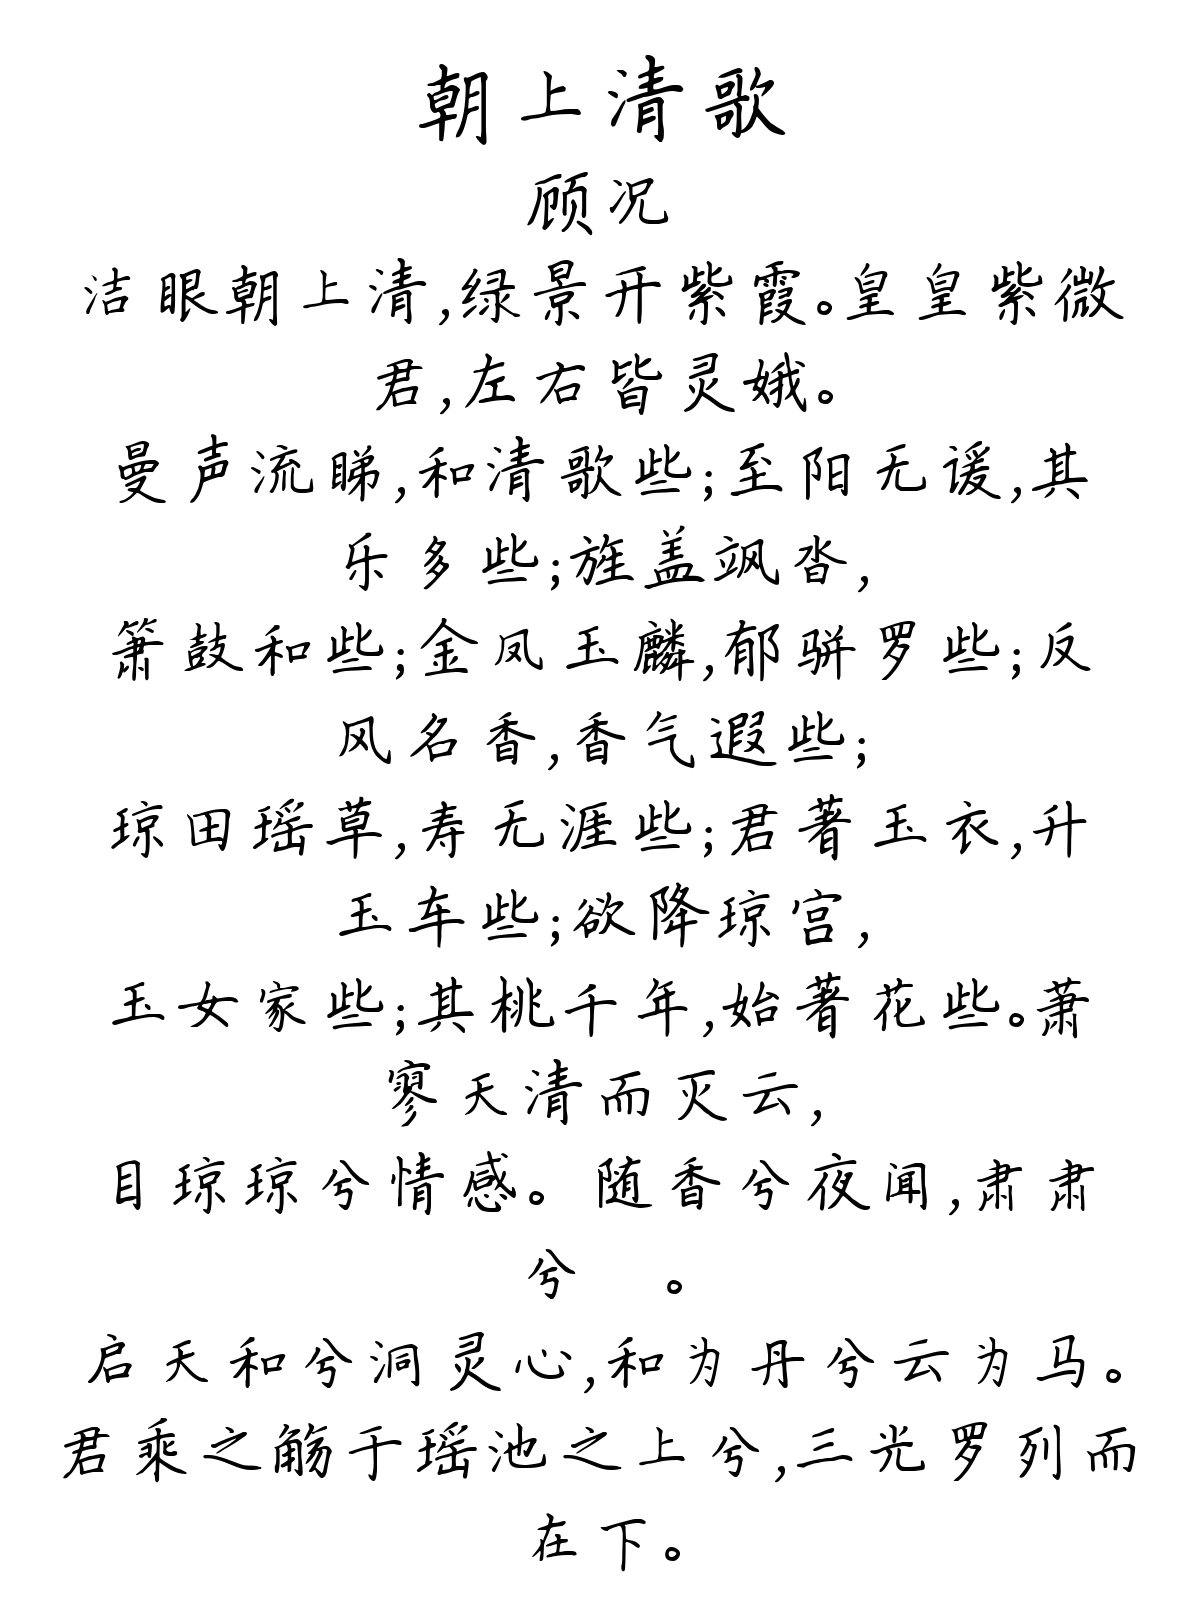 朝上清歌
顾况
洁眼朝上清,绿景开紫霞。皇皇紫微
君,左右皆灵娥。
曼声流睇,和清歌些;至阳无谖,其
乐多些;旌盖飒沓,
箫鼓和些;金凤玉麟,郁骈罗些;反
风名香,香气遐些;
琼田瑶草,寿无涯些;君著玉衣,升
玉车些;欲降琼宫,
玉女家些;其桃千年,始著花些。萧
寥天清而灭云,
目琼琼兮情感。随香兮夜闻,肃肃
兮 。
启天和兮洞灵心,和为丹兮云为马。
君乘之觞于瑶池之上兮,三光罗列而
在下。